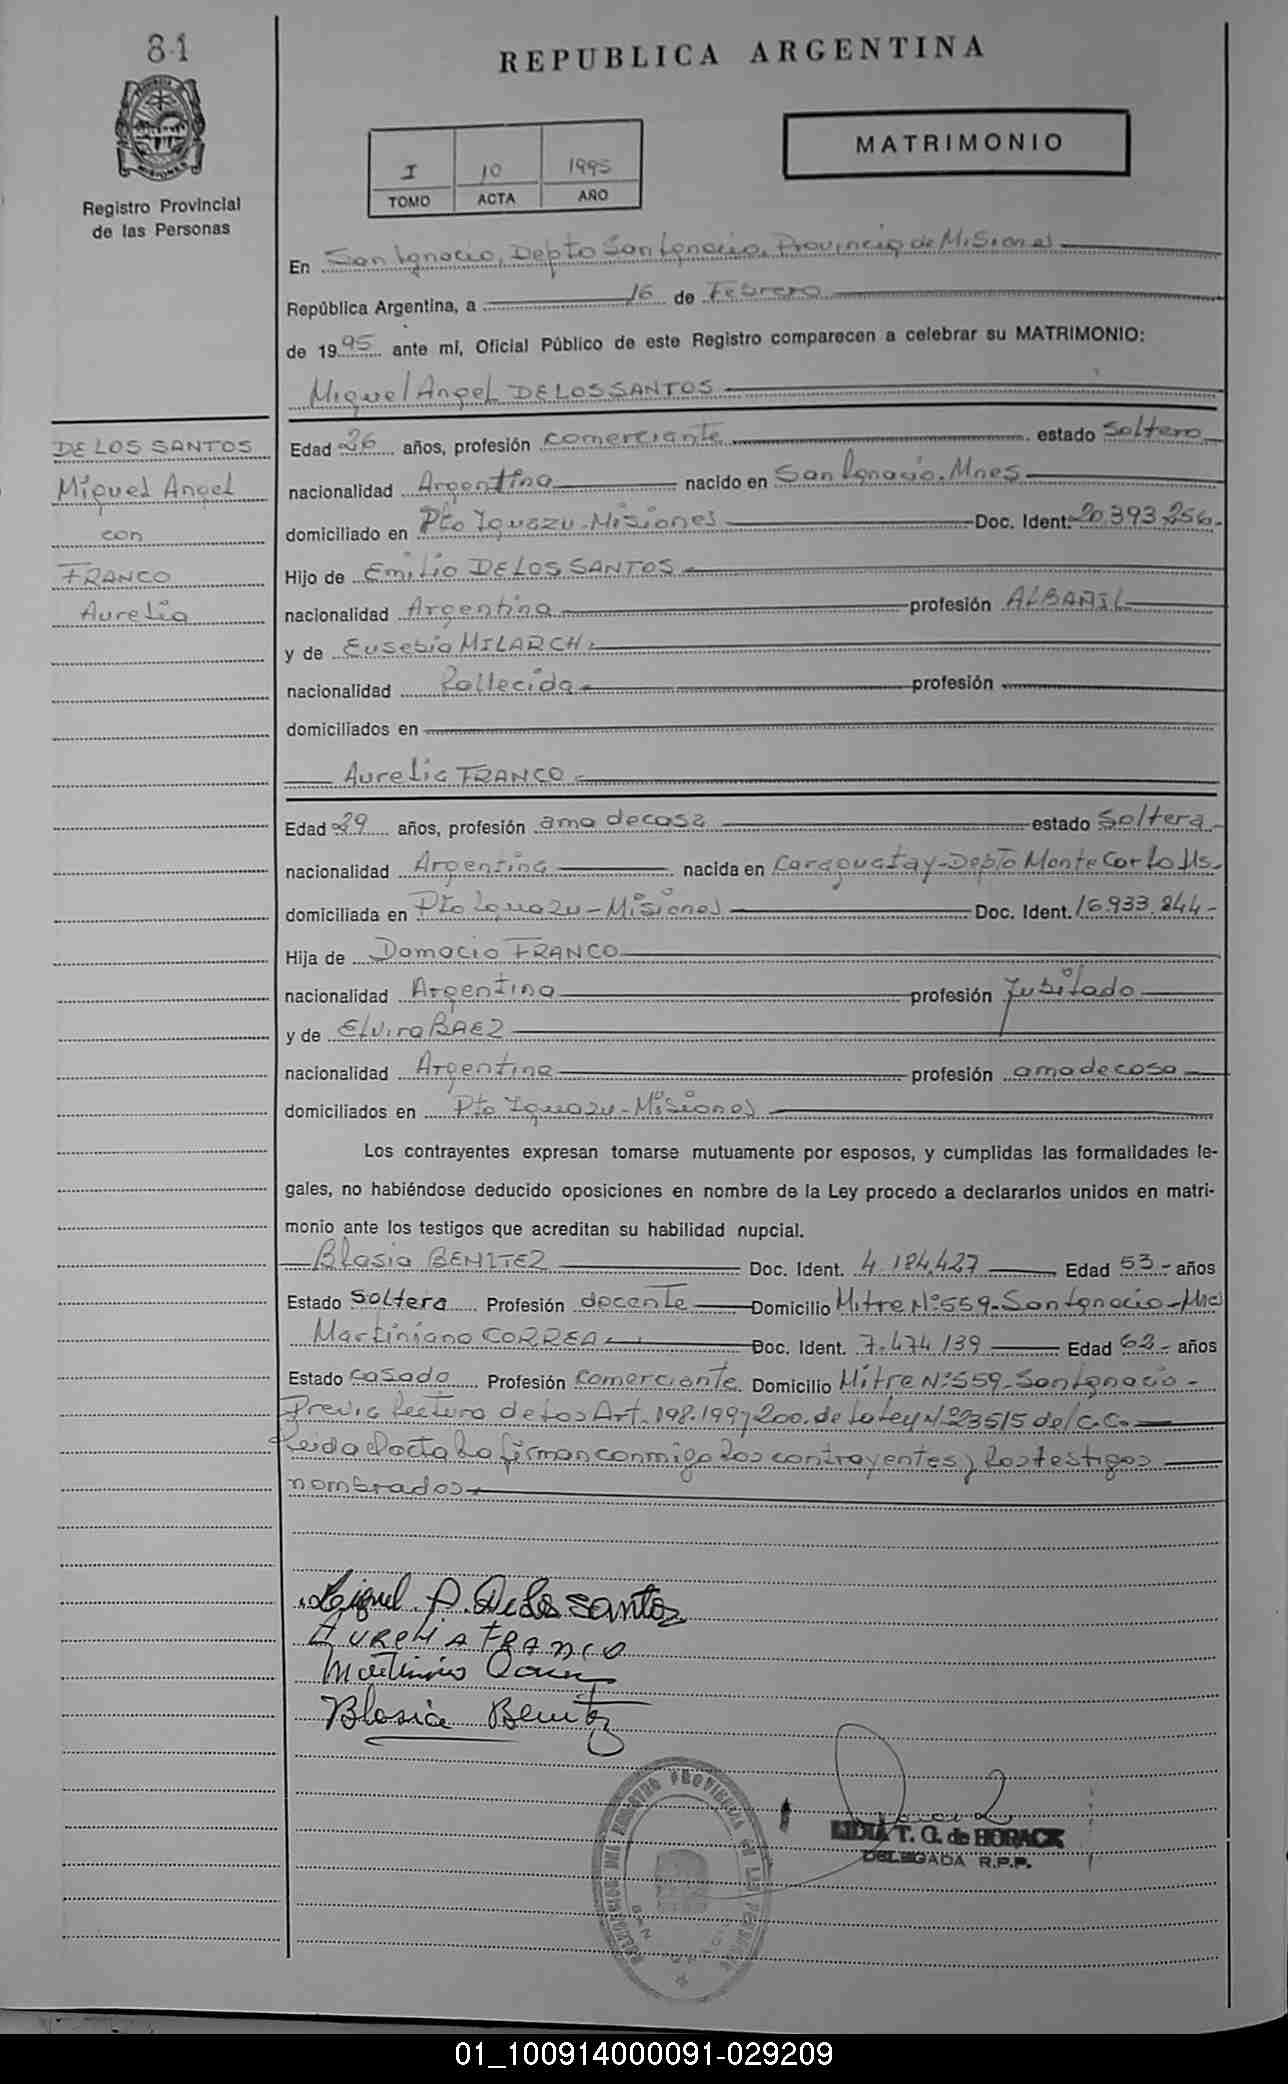 81
REPUBLICA ARGENTINA
MATRIMONIO
I 10 1995
TOMO ACTA AÑO
Registro Provincial
de las Personas
En San Ignacio, Depto San Ignacio, Provincia de Misiones
República Argentina, a 16 de Febrero
de 1995 ante mí, Oficial Público de este Registro comparecen a celebrar su MATRIMONIO:
Miguel Angel DE LOS SANTOS
DE LOS SANTOS
Miguel Angel
con
FRANCO
Aurelia
Edad 26 años, profesión comerciante estado Soltero
nacionalidad Argentina nacido en San Ignacio. Mnes
domiciliado en Pto Iguazu-Misiones Doc. Ident. 20.393.256-
Hijo de Emilio DE LOS SANTOS
nacionalidad Argentina profesión ALBAÑIL
y de Eusebia MILARCH
nacionalidad Fallecida profesión
domiciliados en
Aurelia FRANCO
Edad 29 años, profesión ama de casa estado Soltera
nacionalidad Argentina nacida en Caraguatay-Depto Monte Carlo Ms.
domiciliada en Pto Iguazu-Misiones Doc. Ident. 16.933.844-
Hija de Damacio FRANCO
nacionalidad Argentina profesión Jubilado
y de Elvira BAEZ
nacionalidad Argentina profesión ama de casa
domiciliados en Pto Iguazu-Misiones
Los contrayentes expresan tomarse mutuamente por esposos, y cumplidas las formalidades le-
gales, no habiéndose deducido oposiciones en nombre de la Ley procedo a declararlos unidos en matri-
monio ante los testigos que acreditan su habilidad nupcial.
Blasia BENITEZ Doc. Ident. 4.184.427 Edad 53 años
Estado Soltera Profesión docente Domicilio Mitre Nº559-San Ignacio-
Martiniano CORREA Doc. Ident. 7.474.139 Edad 62 años
Estado Casado Profesión Comerciante Domicilio Mitre Nº559-San Ignacio-
Previa lectura de los Art. 198.199 y 200. de la Ley Nº23515 del C.C.
Leida el acta la firman conmigo los contrayentes y los testigos
nombrados
Miguel A. De los santos
AURELIA FRANCO
Martiniano Correa
Blasia Benitez
LIDIA T. G. de HORACK
DELEGADA R.P.P.
01_100914000091-029209